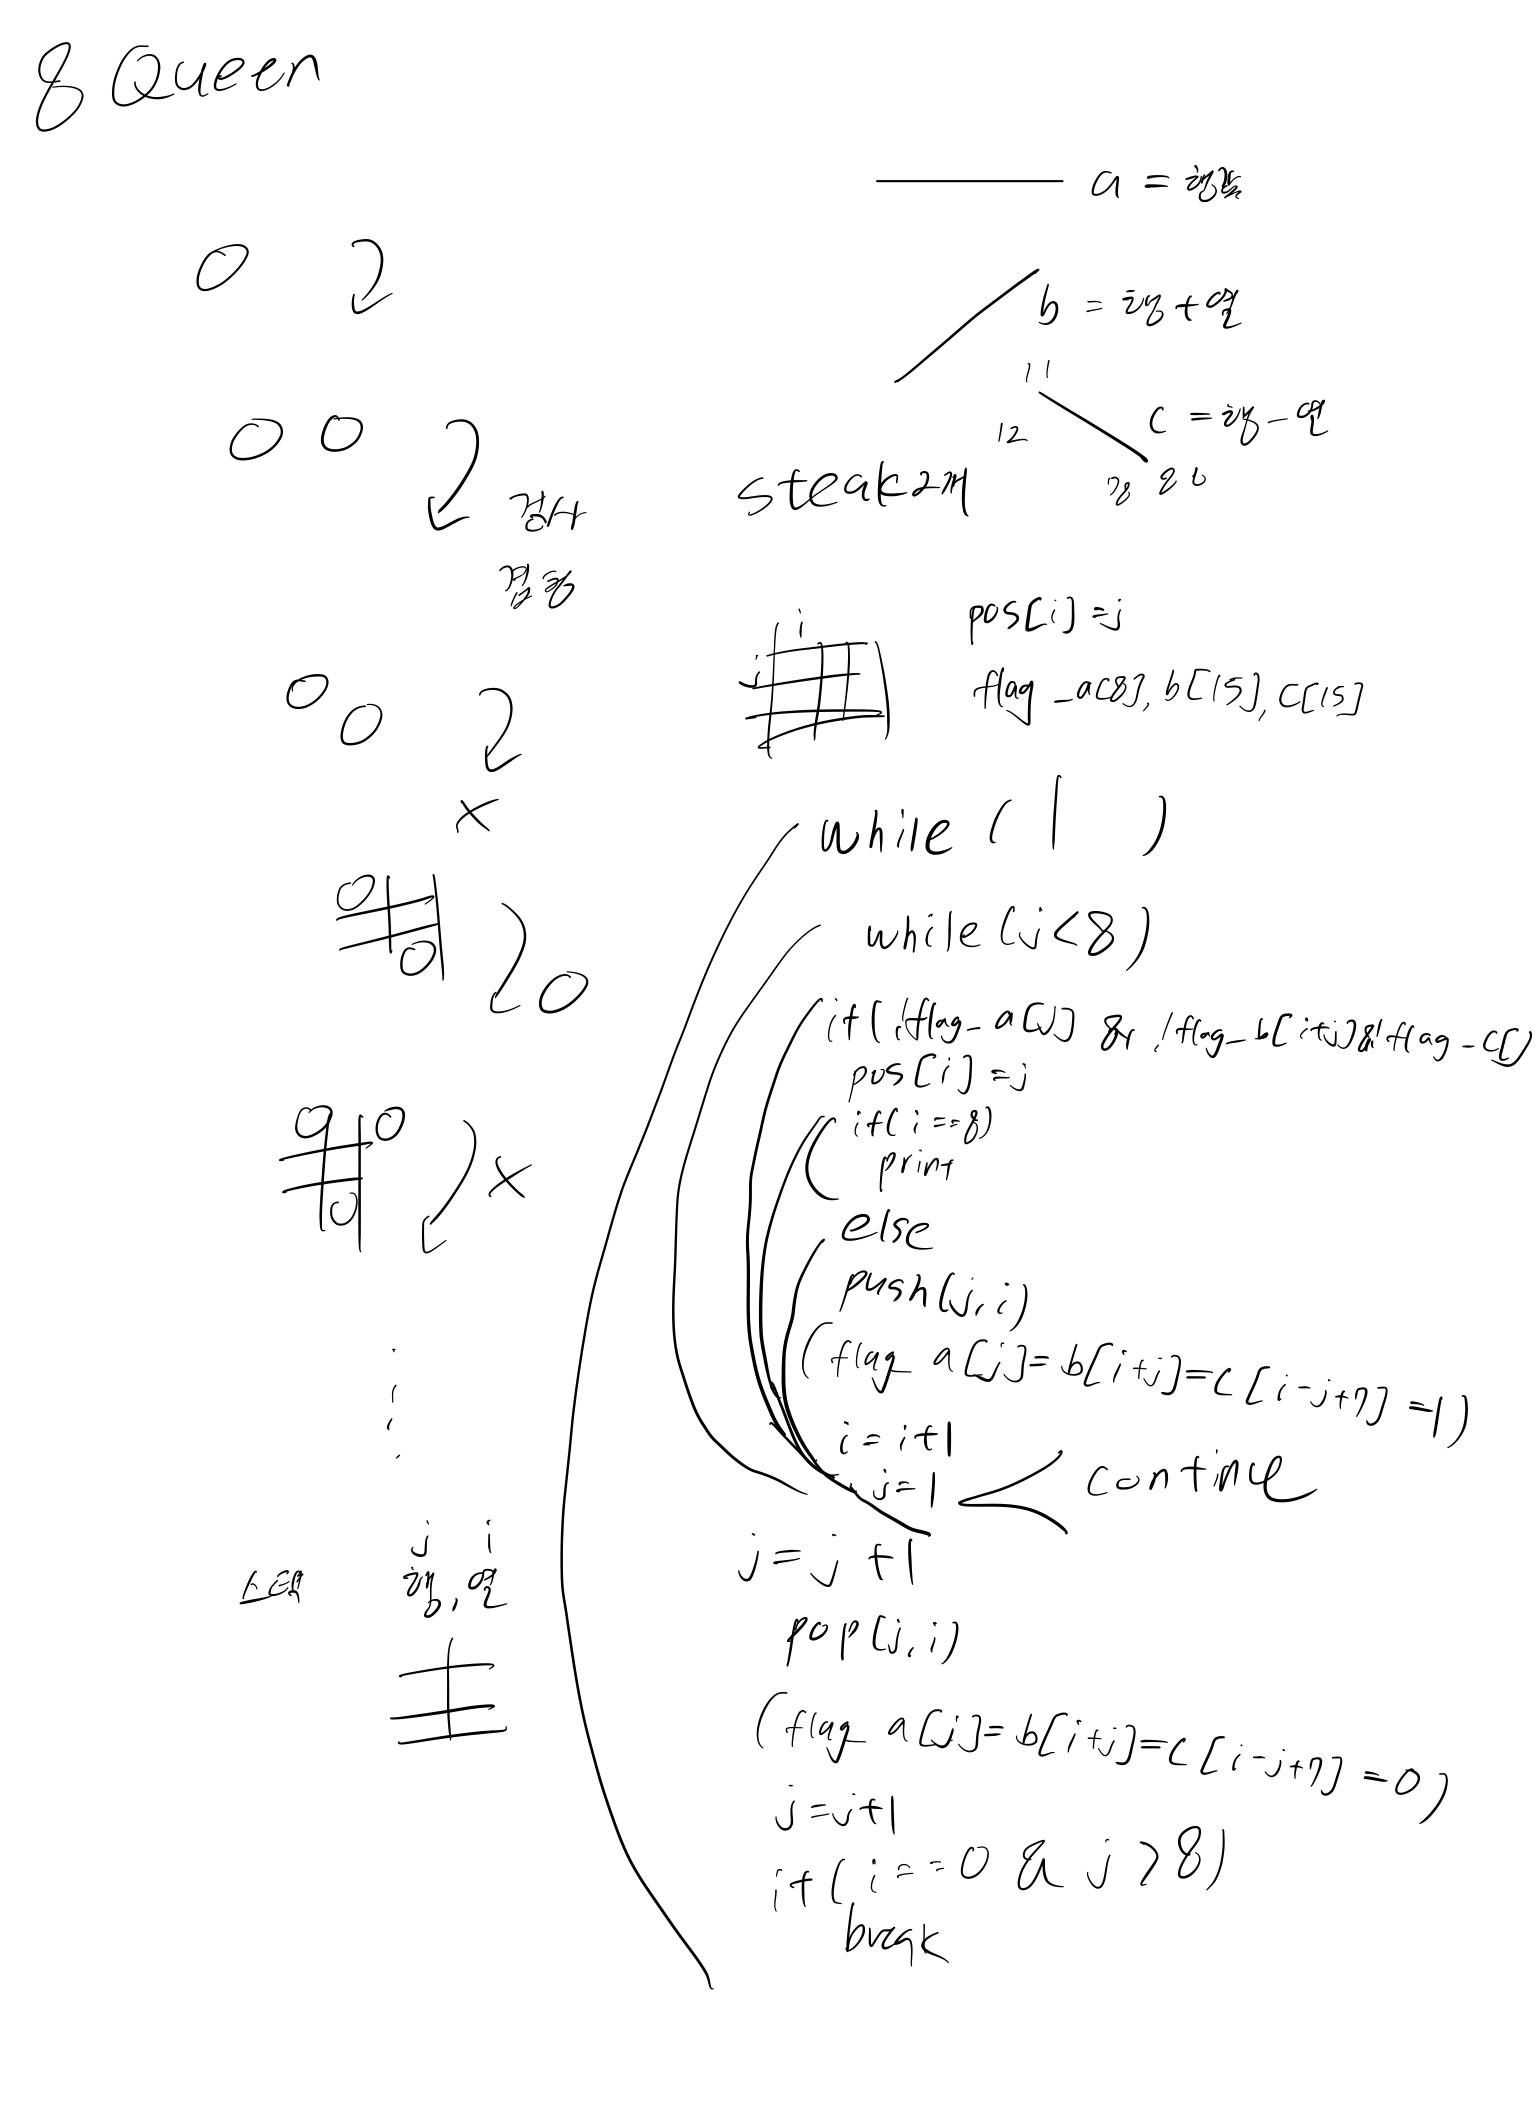 8 Queen
a = 행
b = 행+열
11
c = 행-열
12
steak 2개
검사
i
j
pos[i]=j
flag_a[8], b[15], c[15]
while ( 1 )
while (j<8)
if(!flag_a[j] & !flag_b[i+j]&!flag_c[]
pos[i]=j
if(i==8)
print
else
push(j,i)
(flag_a[j]=b[i+j]=c[i-j+7]=1)
i=i+1
j=1
continue
j=j+1
j i
스택 행, 열
pop(j,i)
(flag_a[j]=b[i+j]=c[i-j+7]=0)
j=j+1
if(i==0 & j>8)
break